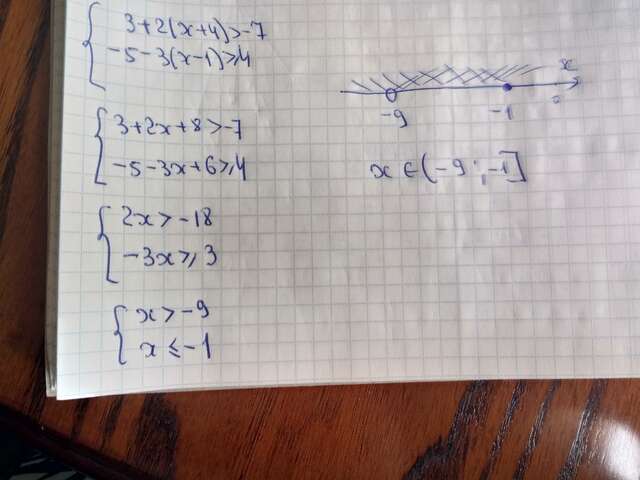 3+2(x+4)>-7
-5-3(x-1)≥4
3+2x+8>-7
-5-3x+6≥4
2x>-18
-3x≥3
x>-9
x≤-1
x
-9 -1
x∈(-9;-1]